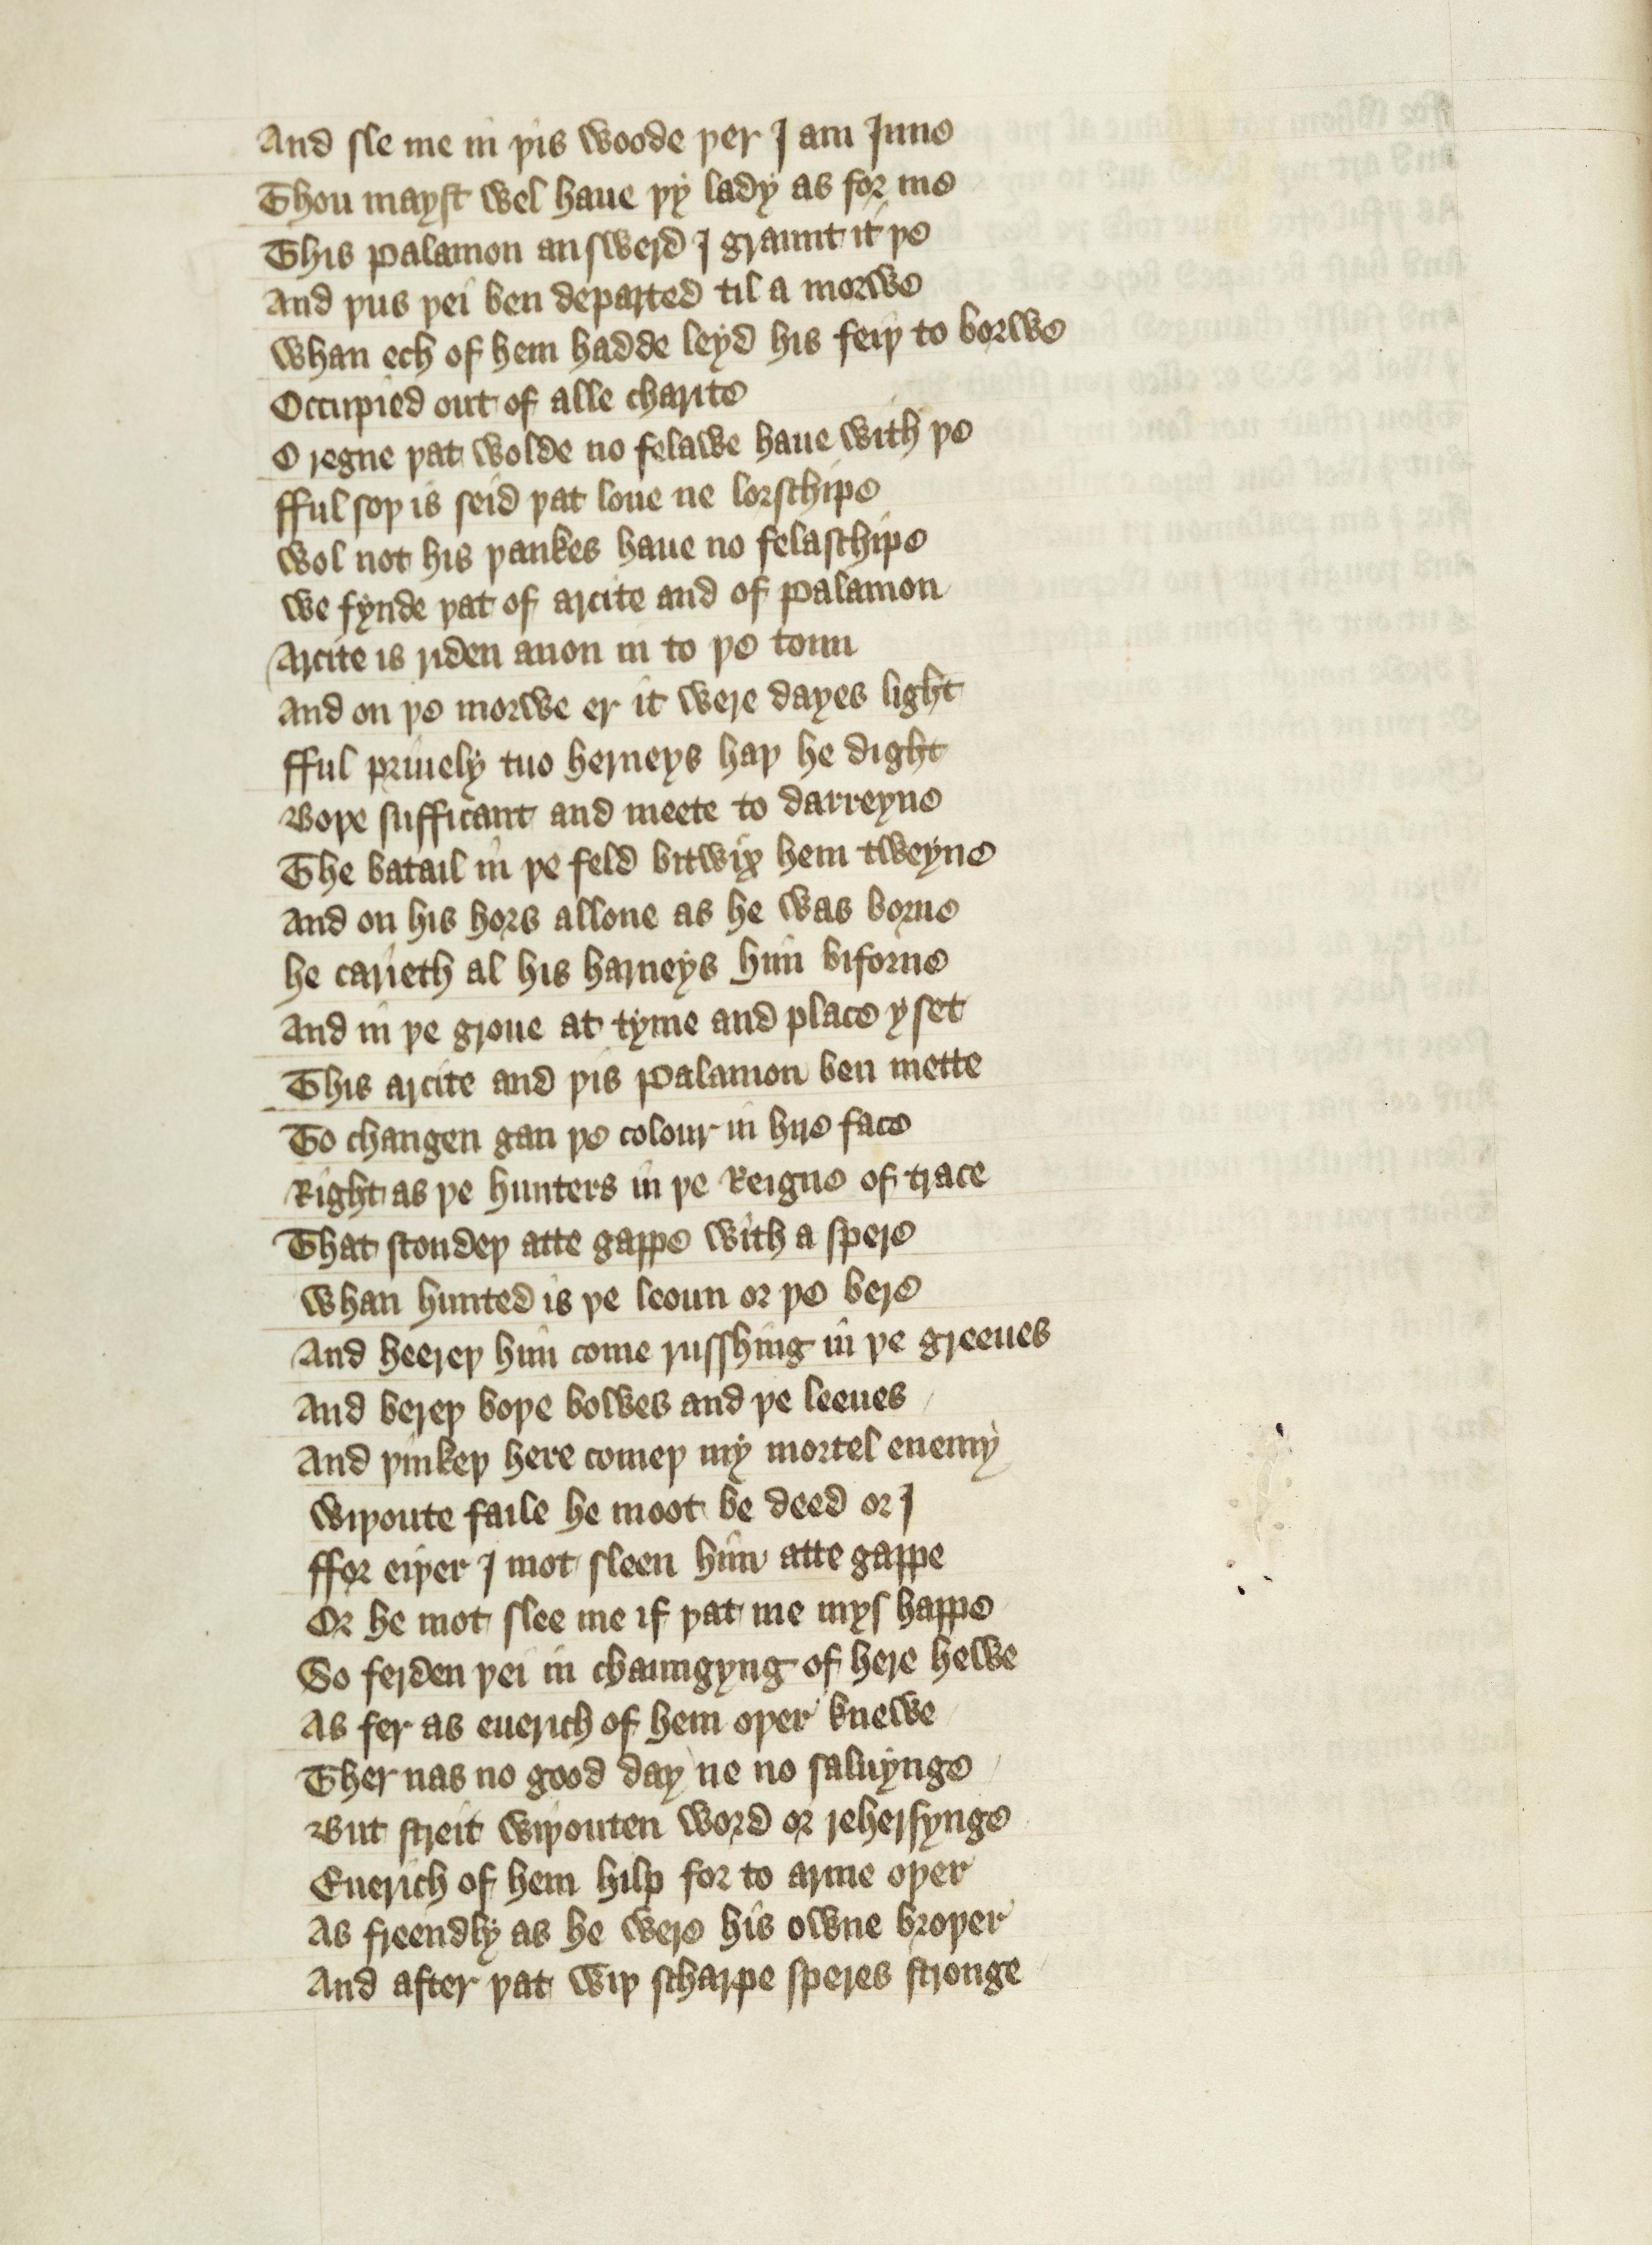 And sle me in þis woode þer I am Inne
Thou mayst wel haue þy lady as for me
This palamon answerd I graunt it þe
And þus þei ben departed til a morwe
whan ech of hem hadde leyd his feiþ to borwe
Occupied out of alle charite
O regne þat wolde no felawe haue with þe
fful soþ is seid þat loue ne lorschipe
wol not his þankes haue no felaschipe
we fynde þat of arcite and of palamon
Arcite is riden anon in to þe toun
And on þe morwe er it were dayes light
fful priuely tuo herneys haþ he dight
Boþe sufficant and meete to darreyne
The batail in þe feld bitwix hem tweyne
And on his hors allone as he was borne
he carieth al his harneys him biforne
And in þe groue at tyme and place y set
This arcite and þis palamon ben mette
To changen gan þe colour in hire face
Right as þe hunters in þe Reigne of trace
That stondeþ atte gappe with a spere
whan hunted is þe leoun or þe bere
And heereþ him come russhing in þe greeues
And bereþ boþe bowes and þe leeues
And þinkeþ here comeþ my mortel enemy
wiþoute faile he moot be deed or I
ffor eiþer I mot sleen him atte gappe
Or he mot slee me if þat me mys happe
So ferden þei in chaungyng of here hewe
As fer as euerich of hem oþer knewe
Ther nas no good day ne no saluynge
But streit wiþouten word or rehersynge
Euerich of hem hilp for to arme oþer
As freendly as he were his owne broþer
And after þat wiþ scharpe speres stronge